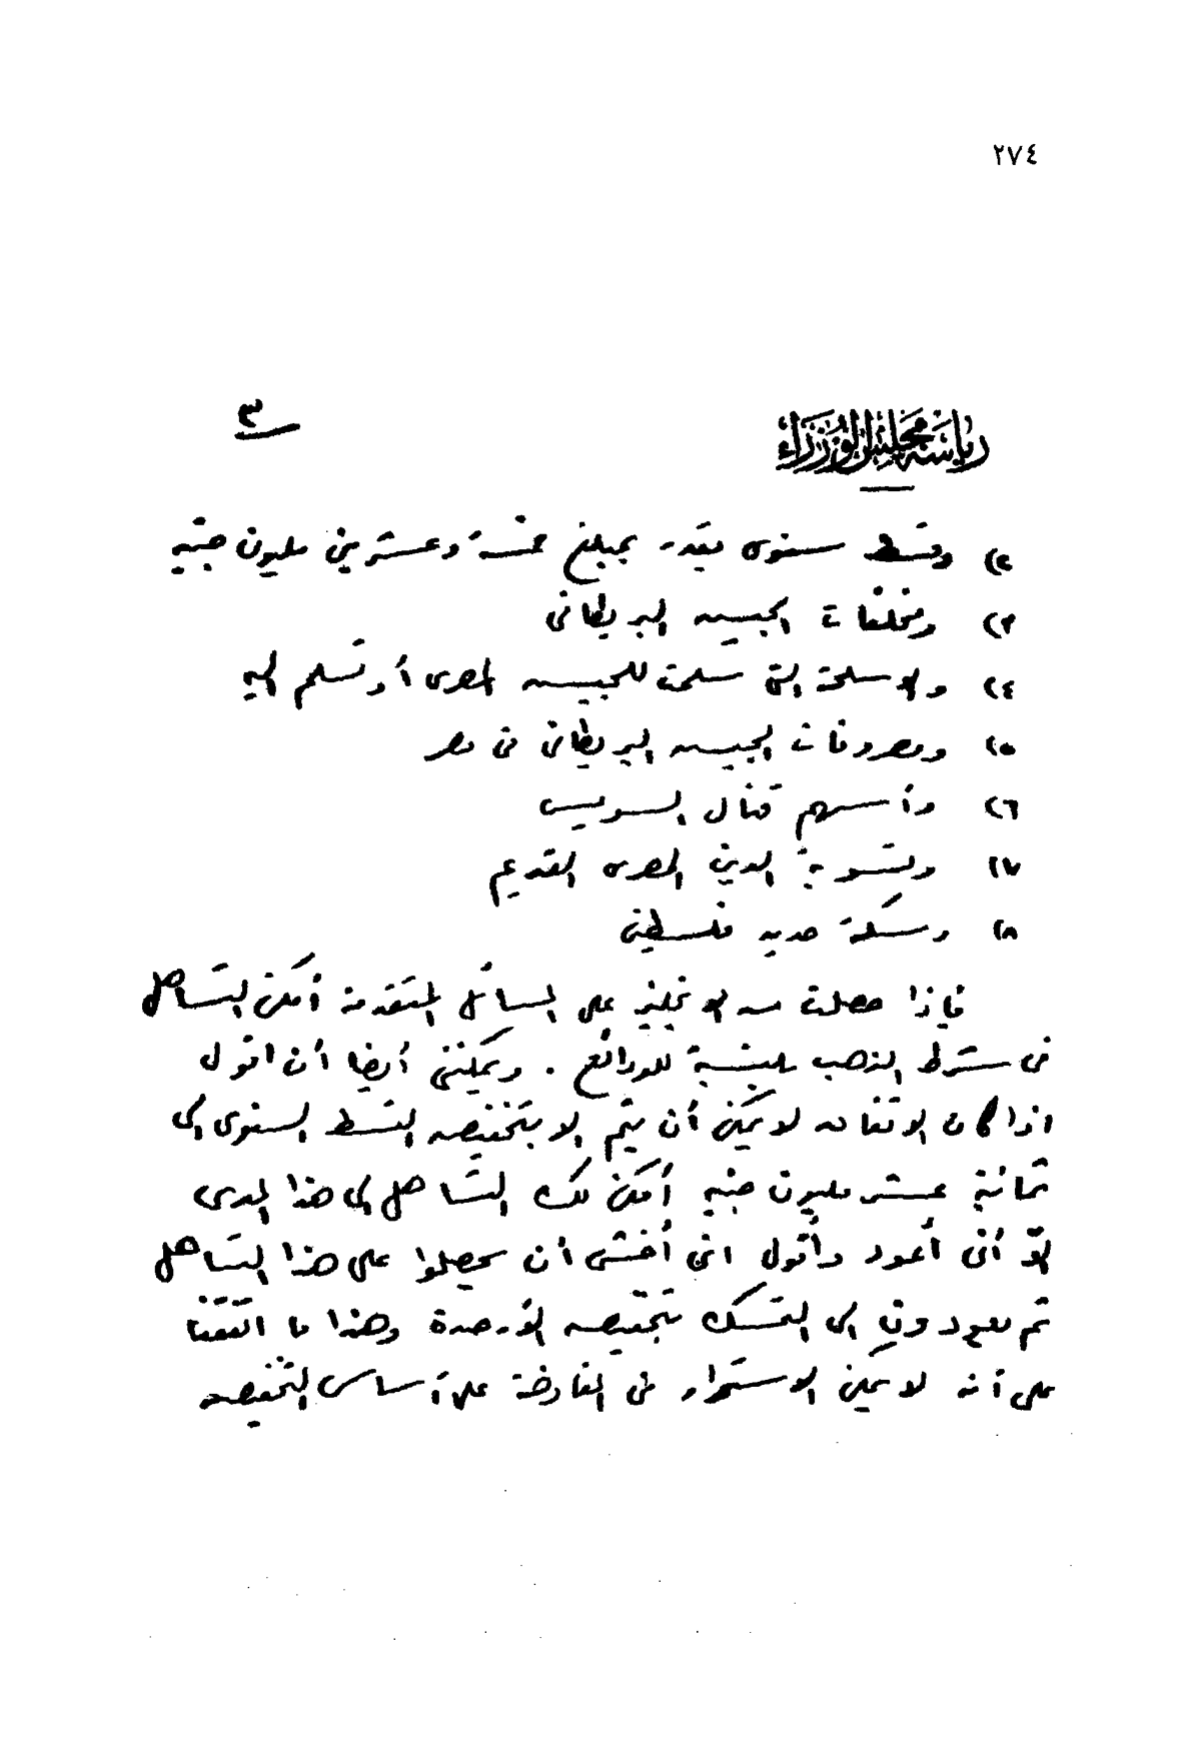 ٢٧٤
٣
رياسة مجلس الوزراء
٢) وقسط سنوى يقدر بمبلغ خمسة وعشرين مليون جنيه
٣) ومخلفات الجيش البريطانى
٤) والأسلحة التى سلمت للجيش المصرى أو تسلم اليه
٥) ومصروفات الجيش البريطانى فى مصر
٦) وأسهم قنال السويس
٧) وتسوية الدين المصرى القديم
٨) وسكة حديد فلسطين
فإذا حصلت من الانجليز على المسائل المتقدمة أمكن التساهل
فى شرط الذهب بالنسبة للودائع . ويمكننى أيضا أن اقول
اذا كان الاتفاق لا يمكن أن يتم الا بتخفيض القسط السنوى الى
ثمانية عشر مليون جنيه أمكن لك التساهل الى هذا المدى
الا أنى أعود وأقول انى أخشى أن يحصلوا على هذا التساهل
ثم يعودون الى التمسك بتخفيض الأرصدة وهذا ما اتفقنا
على أنه لا يمكن الاستمرار فى المفاوضة على أساس التخفيض